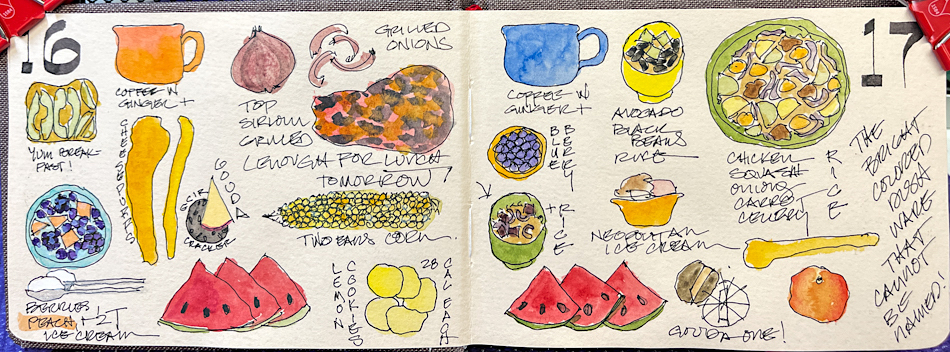 16
COFFEE W
GINGER +
GRILLED
ONIONS
TOP
SIRLOIN
GRILLED
(ENOUGH FOR LUNCH
TOMORROW!
YUM BREAK-
FAST!
CHEESE PUFFS
GOUDA
CRACKER
TWO EARS CORN.
BERRIES
PEACH + 2T
ICE CREAM
LEMON
COOKIES
28
CAL EACH
17
COFFEE W
GINGER +
AVOCADO
BLACK
BEANS
RICE
BLUEBERRY
+ RICE
NEOPOLITAN
ICE CREAM
CHICKEN
SQUASH
ONIONS
CARROT
CELERY
RICE
GOUDA ONE!
THE
BRIGHT
COLORED
WARE
THAT
CANNOT
BE
NAMED.